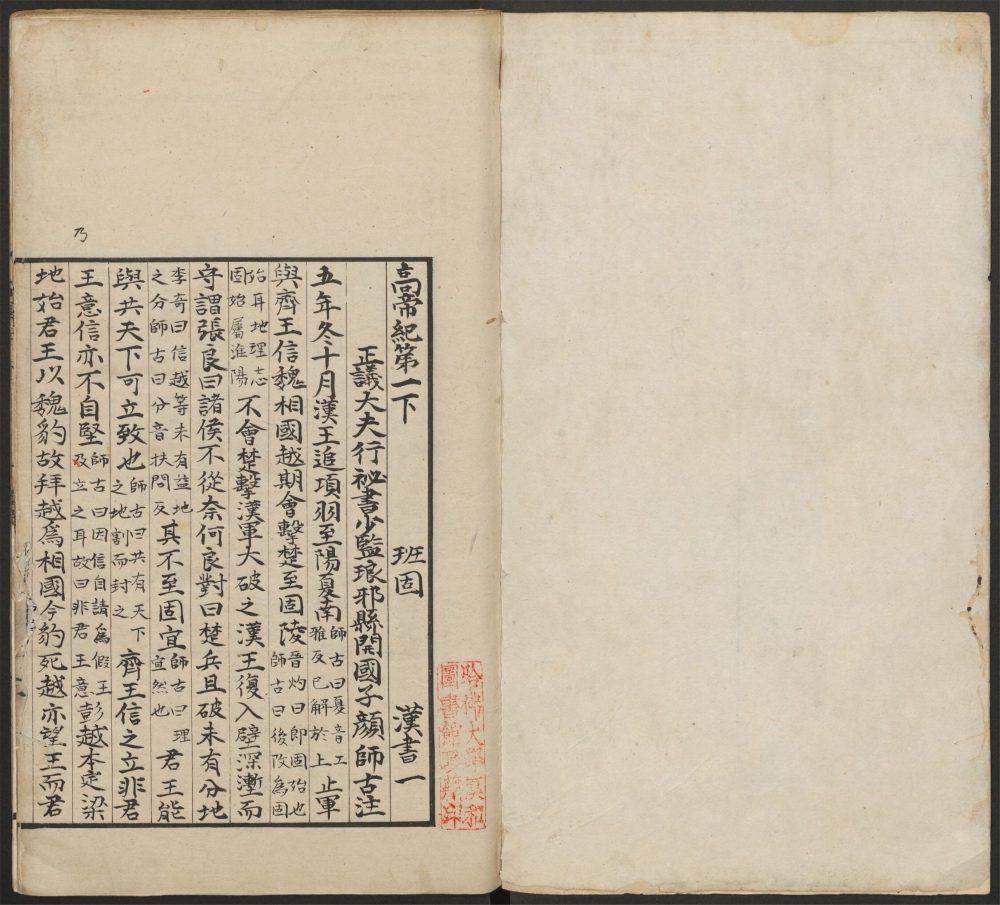 哈佛大學漢和
圖書館珍藏印
高帝紀第一下 班固 漢書一
正議大夫行祕書少監琅邪縣開國子顏師古注
五年冬十月漢王追項羽至陽夏南師古曰夏音工雅反已解於上止軍
與齊王信魏相國越期會擊楚至固陵晉灼曰即固始也師古曰後改爲固
始耳地理志固始屬淮陽不會楚擊漢軍大破之漢王復入壁深塹而
守謂張良曰諸侯不從奈何良對曰楚兵且破未有分地
李奇曰信越等未有益地之分師古曰分音扶問反其不至固宜師古曰理宜然也君王能
與共天下可立致也師古曰共有天下之地割而封之齊王信之立非君
乃
王意信亦不自堅師古曰因信自請爲假王及立之耳故曰非君王意彭越本定梁
地始君王以魏豹故拜越爲相國今豹死越亦望王而君